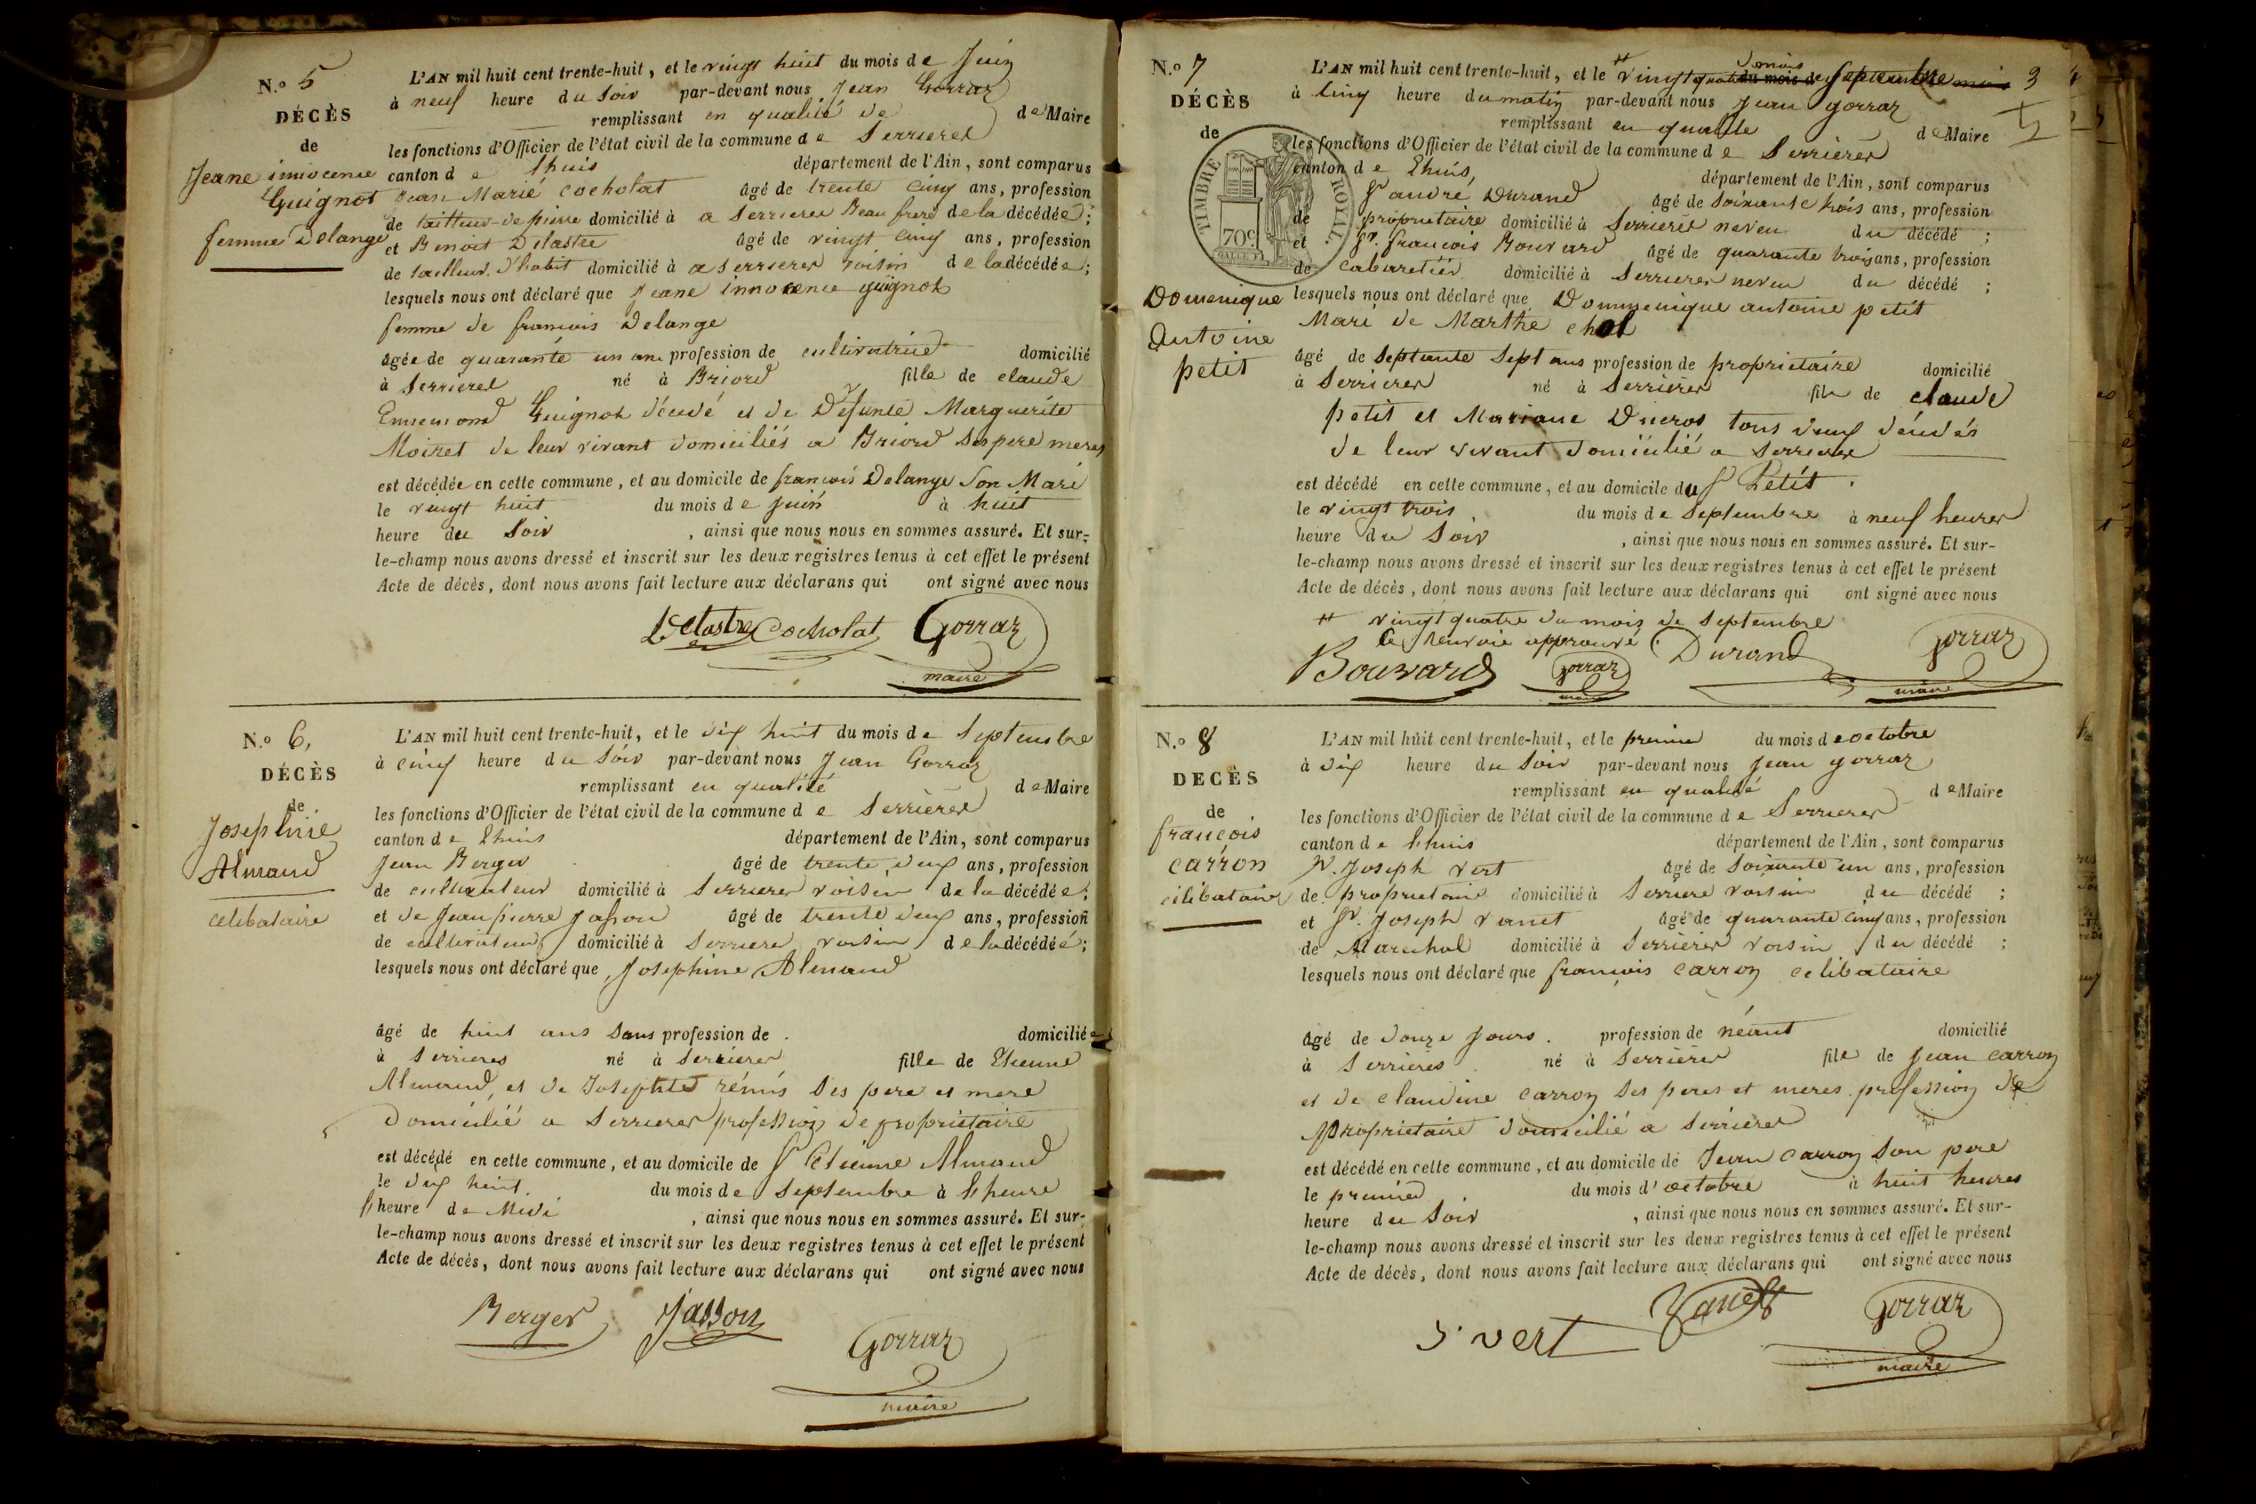 N.o 5
DÉCÈS
de
Jeane innocence
Guignot
femme Delange
L'AN mil huit cent trente-huit, et le vingt huit du mois de Juin
à neuf heure du Soir par-devant nous Jean Gorraz
remplissant en qualité de de Maire
les fonctions d'Officier de l'état civil de la commune de Serrieres
canton de Lhuis département de l'Ain, sont comparus
Jean Marie Cocholat âgé de trente cinq ans, profession
de tailleur de pierre domicilié à a Serrieres Beau frere de la décédée;
et Benoit Delastre âgé de vingt cinq ans, profession
de tailleur d'habit domicilié à a Serrieres voisin de la décédée;
lesquels nous ont déclaré que Jeane innocence guignot
femme de francois Delange
âgée de quarante un an profession de cultivatrice domicilié
à Serrieres né à Briord fille de claude
Guignot décédé et de Défunte Marguerite
Moiret de leur vivant domiciliés a Briord Ses pere meres
est décédée en cette commune, et au domicile de francois Delange Son Mari
le vingt huit du mois de Juin à huit
heure du Soir , ainsi que nous nous en sommes assuré. Et sur-
le-champ nous avons dressé et inscrit sur les deux registres tenus à cet effet le présent
Acte de décès, dont nous avons fait lecture aux déclarans qui ont signé avec nous
Delastre Cocholat Gorraz
maire
N.o 6,
DÉCÈS
de
Josephine
Almand
celibataire
L'AN mil huit cent trente-huit, et le dix huit du mois de Septembre
à cinq heure du Soir par-devant nous Jean Gorraz
remplissant en qualité de Maire
les fonctions d'Officier de l'état civil de la commune de Serrieres
canton de Lhuis département de l'Ain, sont comparus
Jean Berger âgé de trente deux ans, profession
de cultivateur domicilié à Serrieres voisin de la décédée;
et de Jean pierre Jasson âgé de trente deux ans, profession
de cultivateur domicilié à Serrieres voisin de la décédée;
lesquels nous ont déclaré que Josephine Almand
âgé de huit ans Sans profession de domiciliée
à Serrieres né à Serrieres fille de Etienne
Almand, et de Josephte rémis Ses pere et mere
Domicilié a Serrieres profession de proprietaire
est décédé en cette commune, et au domicile de Sr Etienne Almand
le dix huit du mois de Septembre à heure
heure de Midi , ainsi que nous nous en sommes assuré. Et sur-
le-champ nous avons dressé et inscrit sur les deux registres tenus à cet effet le présent
Acte de décès, dont nous avons fait lecture aux déclarans qui ont signé avec nous
Berger Jasson
Gorraz
maire
3
N.o 7
DÉCÈS
de
TIMBRE ROYAL
70c
Domenique
Antoine
petit
L'AN mil huit cent trente-huit, et le vingt quatre du mois de Septembre
à cinq heure du matin par-devant nous Jean gorraz
remplissant en qualité de Maire
les fonctions d'Officier de l'état civil de la commune de Serrieres
canton de Lhuis, département de l'Ain, sont comparus
Sr andré Durand âgé de Soixante trois ans, profession
de proprietaire domicilié à Serrieres neveu du décédé;
et Sr. francois Bouvard âgé de quarante trois ans, profession
de cabaretier domicilié à Serrieres neveu du décédé;
lesquels nous ont déclaré que Dommenique antoine petit
Mari de Marthe
âgé de Septante Sept ans profession de proprietaire domicilié
à Serrieres né à Serrieres fils de claude
petit et Mariane Ducros tous deux décédés
de leur vivant domicilié a Serrieres
est décédé en cette commune, et au domicile du Sr Petit.
le vingt trois du mois de Septembre à neuf heures
heure du Soir , ainsi que nous nous en sommes assuré. Et sur-
le-champ nous avons dressé et inscrit sur les deux registres tenus à cet effet le présent
Acte de décès, dont nous avons fait lecture aux déclarans qui ont signé avec nous
vingt quatre du mois de Septembre
Le renvoie approuvé
Bouvard Gorraz Durand Gorraz
maire maire
N.o 8
DÉCÈS
de
francois
carron
célibataire
L'AN mil huit cent trente-huit, et le premier du mois de octobre
à dix heure du Soir par-devant nous Jean gorraz
remplissant en qualité de Maire
les fonctions d'Officier de l'état civil de la commune de Serrieres
canton de Lhuis département de l'Ain, sont comparus
Sr. Joseph Vert âgé de Soixante un ans, profession
de proprietaire domicilié à Serriere voisin du décédé;
et Sr. Joseph Vanet âgé de quarante cinq ans, profession
de Marechal domicilié à Serrieres voisin du décédé;
lesquels nous ont déclaré que francois carron celibataire
âgé de douze Jours. profession de néant domicilié
à Serrieres né à Serrieres fils de Jean carron
et de claudine carron Ses peres et meres profession de
proprietaire domicilié a Serrieres
est décédé en cette commune, et au domicile de Jean carron Son pere
le premier du mois d'octobre à huit heures
heure du Soir , ainsi que nous nous en sommes assuré. Et sur-
le-champ nous avons dressé et inscrit sur les deux registres tenus à cet effet le présent
Acte de décès, dont nous avons fait lecture aux déclarans qui ont signé avec nous
J. vert Vanet Gorraz
maire